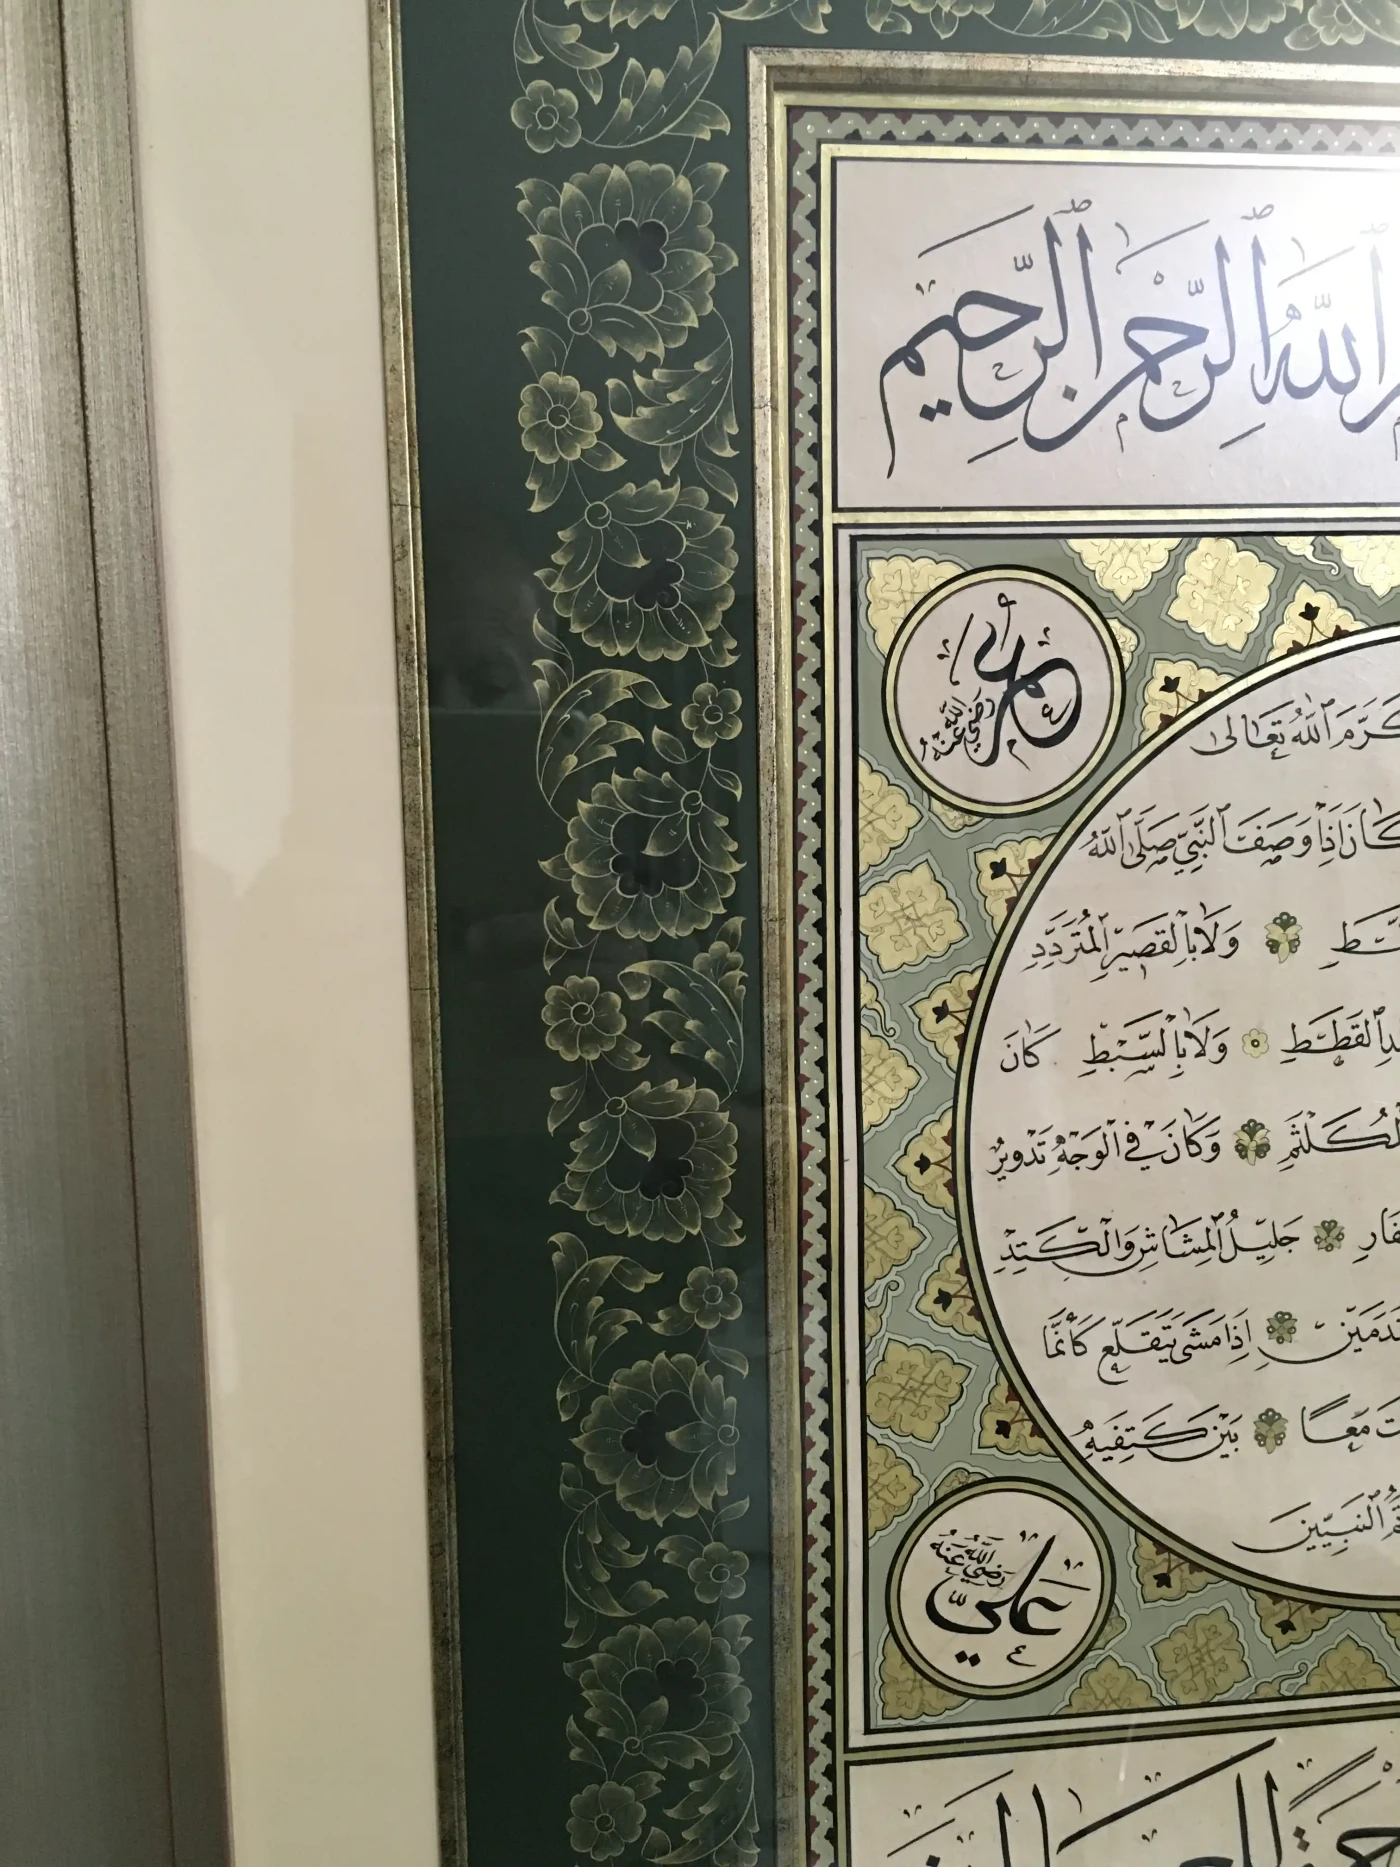 ٱللّٰهِ ٱلرَّحْمٰنِ ٱلرَّحِيمِ
عُمَر
رَضِيَ اللّٰهُ عَنْهُ
كَرَّمَ ٱللّٰهُ تَعَالٰى
كَانَ اِذَا وَصَفَ ٱلنَّبِيَّ صَلَّى ٱللّٰهُ
وَلَا بِالْقَصِيرِ ٱلْمُتَرَدِّدِ
ٱلْقَطَطِ وَلَا بِالسَّبْطِ كَانَ
وَكَانَ فِي ٱلْوَجْهِ تَدْوِيرٌ
جَلِيلُ ٱلْمُشَاشِ وَالْكَتَدِ
اِذَا مَشٰى يَتَقَلَّعُ كَأَنَّمَا
مَعًا بَيْنَ كَتِفَيْهِ
ٱلنَّبِيِّينَ
عَلِيّ
رَضِيَ اللّٰهُ عَنْهُ